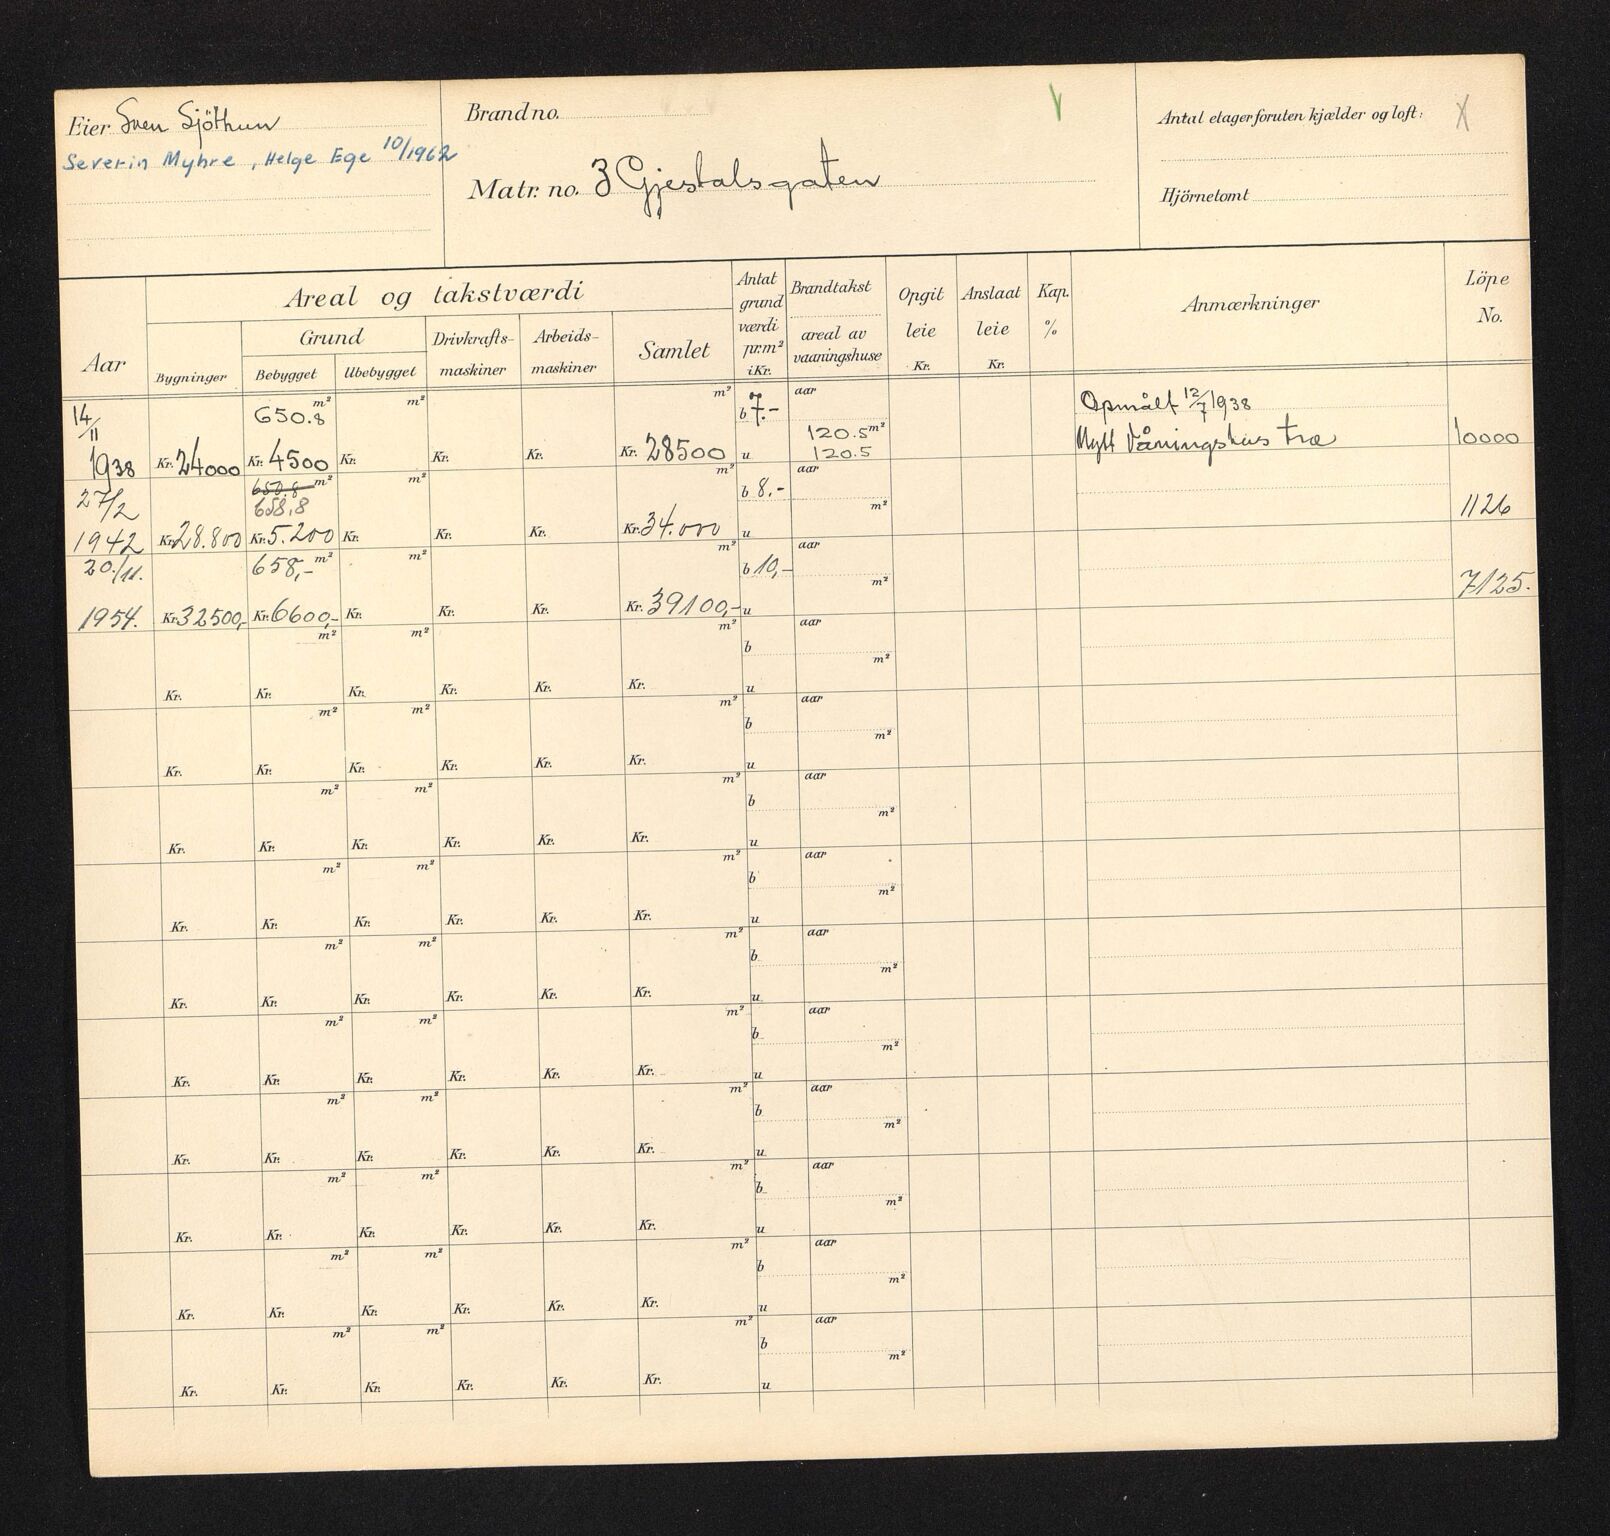 Eier Sven Sjöthun
Severin Myhre, Helge Ege 10/1962
Brand no.
Matr. no. 3 Gjestalsgaten
Antal etager foruten kjælder og loft: X
Hjörnetomt
Aar
Areal og takstværdi
Bygninger
Grund
Bebygget
Ubebygget
Drivkrafts-
maskiner
Arbeids-
maskiner
Samlet
Antat
grund
værdi
pr.m²
i Kr.
Brandtakst
areal av
vaaningshuse
Opgit
leie
Kr.
Anslaat
leie
Kr.
Kap.
%
Anmærkninger
Löpe
No.
14/11 650.8 m² m² m² b 7.- aar Opmålt 12/7 1938
120.5 m²
1938 Kr. 24000 Kr. 4500 Kr. Kr. Kr. Kr. 28500 u 120.5 Nytt Våningshus træ 10000
27/2 650.8 m² m² m² b 8,- aar
658,8 m²
1942 Kr. 28.800 Kr. 5.200 Kr. Kr. Kr. Kr. 34.000 u 1126
20./11. 658,- m² m² m² b 10,- aar
m²
1954. Kr. 32500,- Kr. 6600,- Kr. Kr. Kr. Kr. 39100,- u 7125.
m² m² m² b aar
m²
Kr. Kr. Kr. Kr. Kr. Kr. u
m² m² m² b aar
m²
Kr. Kr. Kr. Kr. Kr. Kr. u
m² m² m² b aar
m²
Kr. Kr. Kr. Kr. Kr. Kr. u
m² m² m² b aar
m²
Kr. Kr. Kr. Kr. Kr. Kr. u
m² m² m² b aar
m²
Kr. Kr. Kr. Kr. Kr. Kr. u
m² m² m² b aar
m²
Kr. Kr. Kr. Kr. Kr. Kr. u
m² m² m² b aar
m²
Kr. Kr. Kr. Kr. Kr. Kr. u
m² m² m² b aar
m²
Kr. Kr. Kr. Kr. Kr. Kr. u
m² m² m² b aar
m²
Kr. Kr. Kr. Kr. Kr. Kr. u
m² m² m² b aar
m²
Kr. Kr. Kr. Kr. Kr. Kr. u